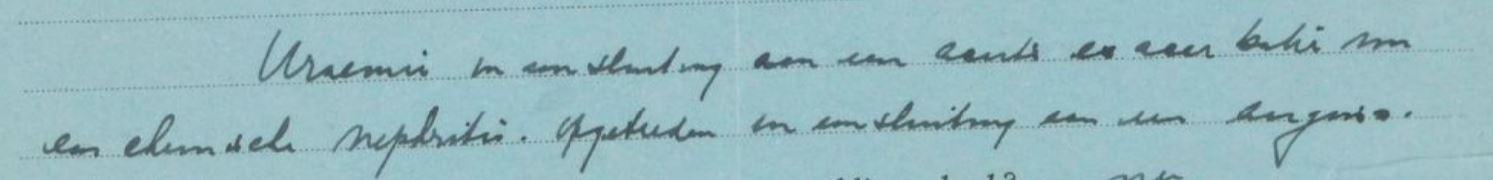 Uraemie in aansluiting aan een acute exacerbatie van
een chronische nephritis. Opgetreden in aansluiting aan een angina.